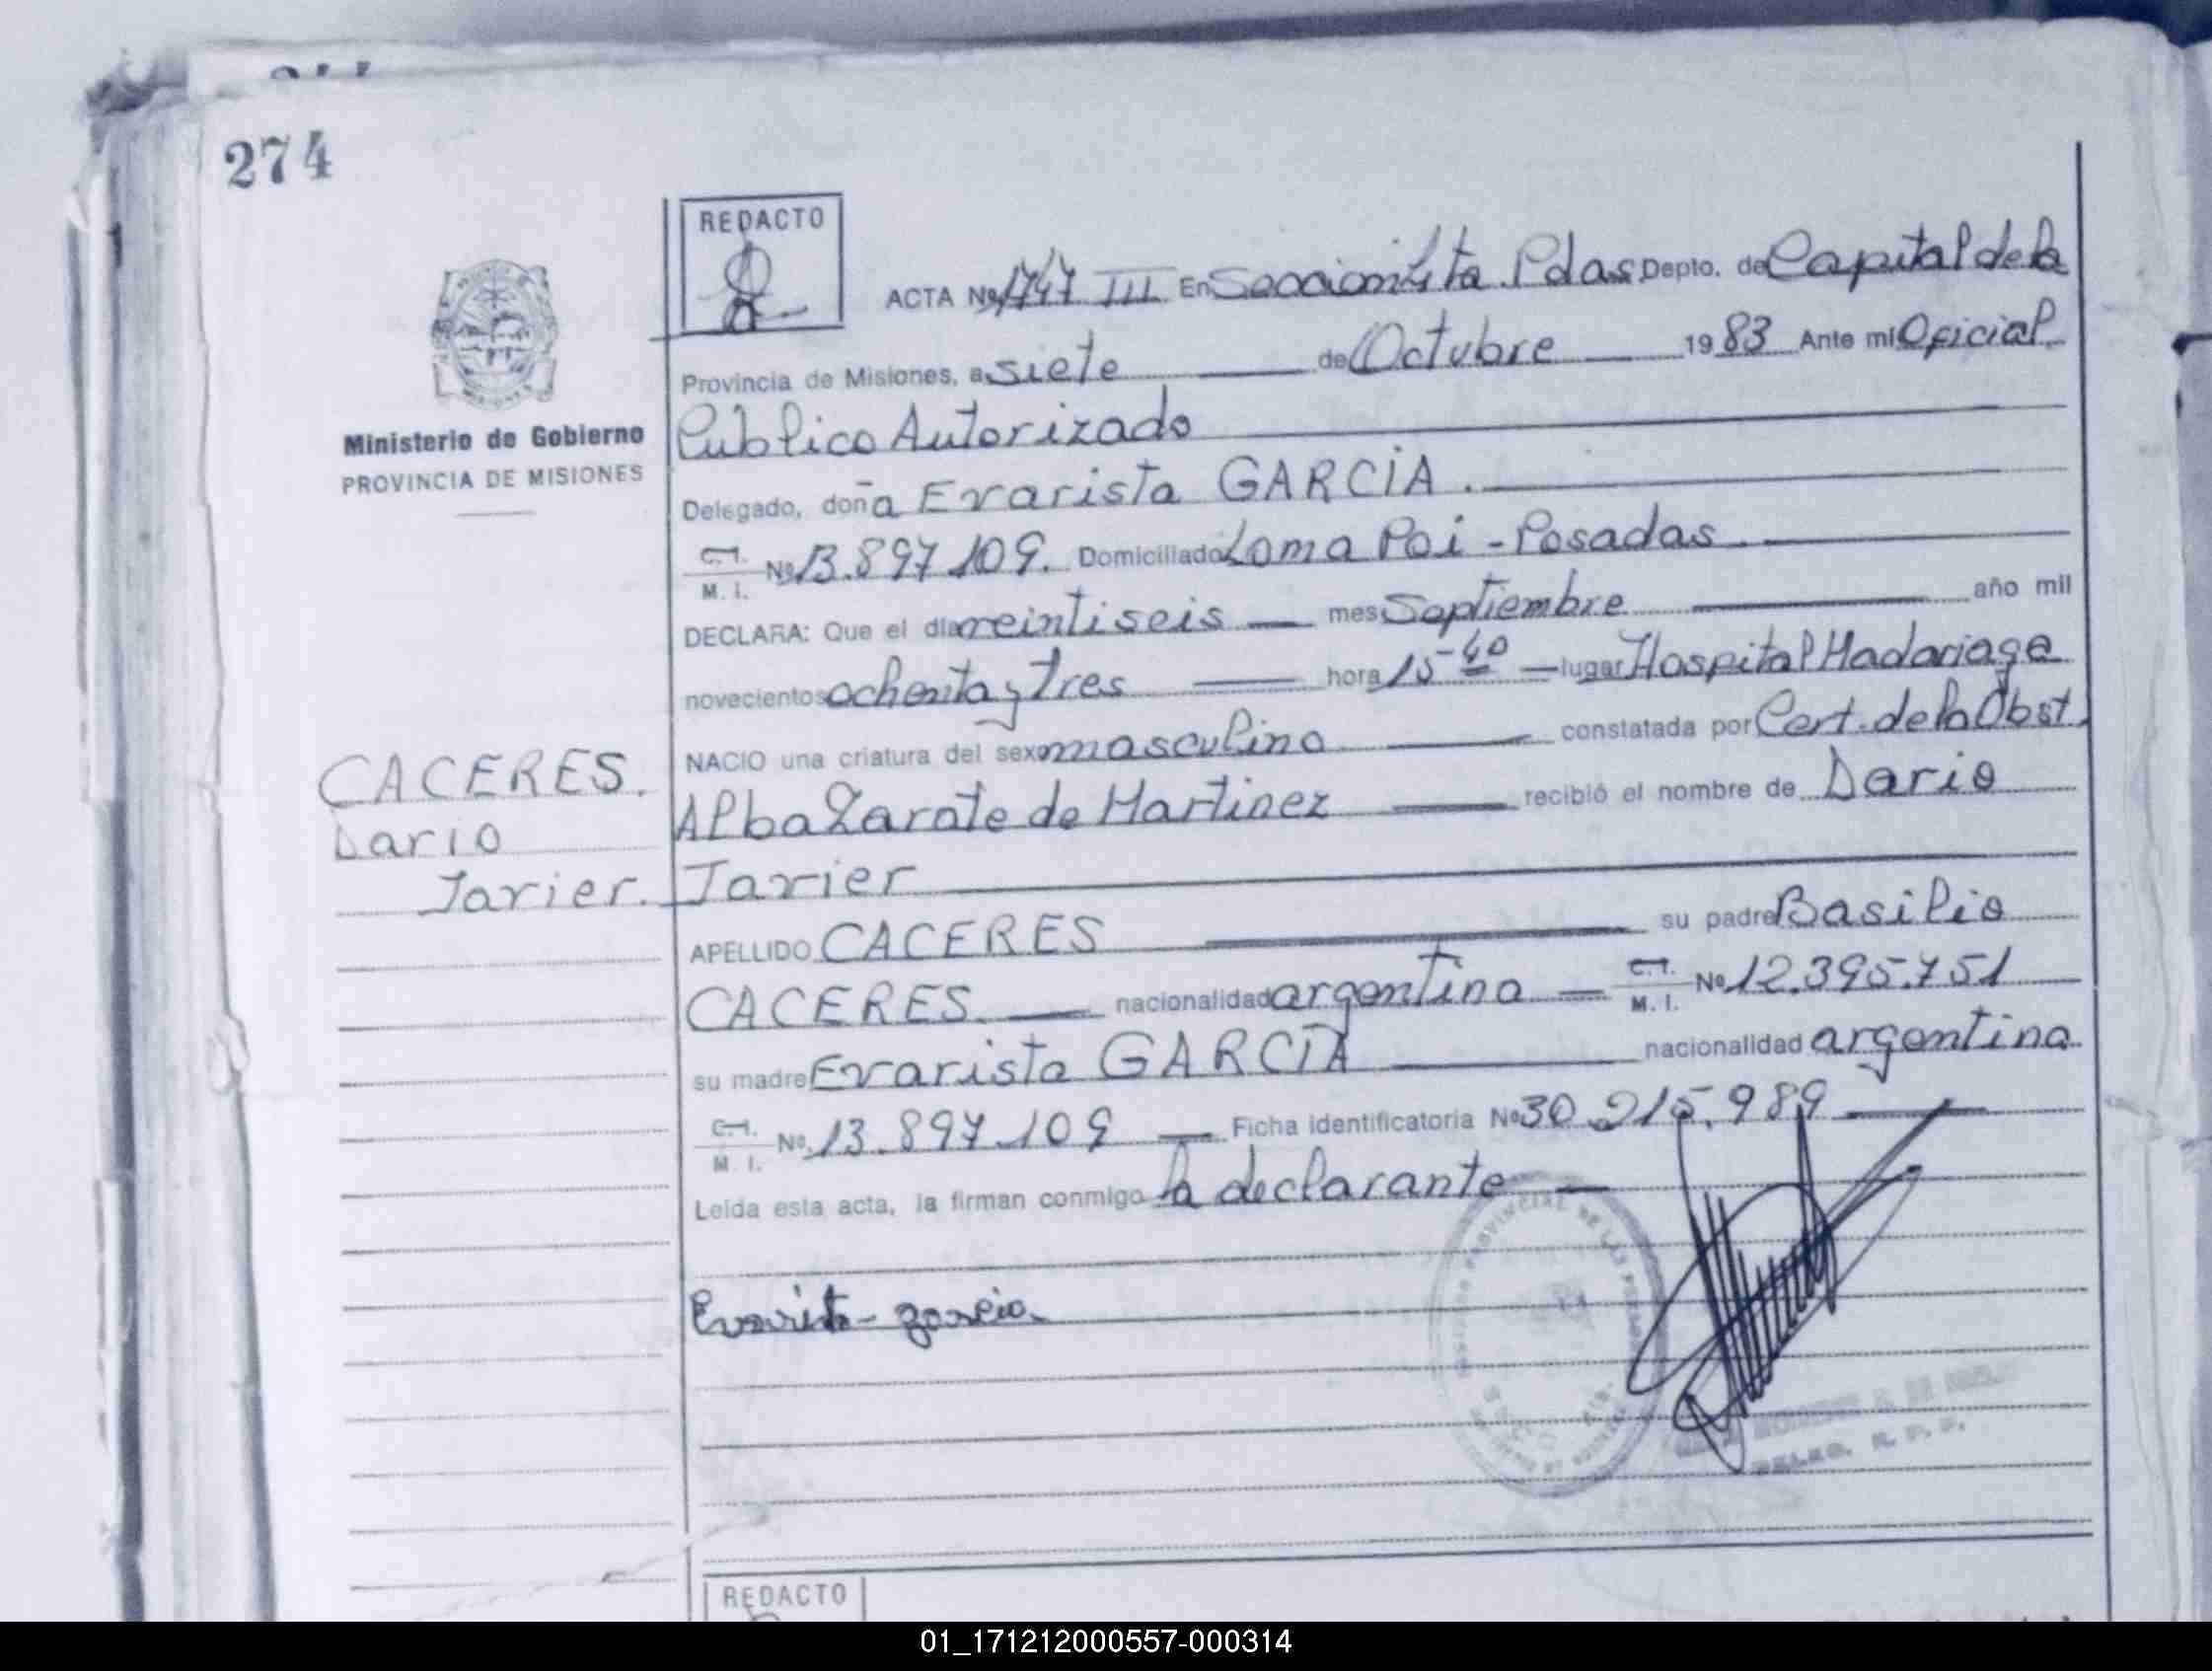 274
REDACTO
ACTA Nº 1747 III En Sección 4ta Pdas Depto. de Capital de la
Provincia de Misiones, a siete de Octubre 1983 Ante mi Oficial
Ministerio de Gobierno
PROVINCIA DE MISIONES
Público Autorizado
Delegado, doña Evarista GARCIA.
C.I. M. I. Nº 13.897.109. Domiciliado Loma Poi - Posadas
DECLARA: Que el día veintiseis mes Septiembre año mil
novecientos ochenta y tres hora 15-40 lugar Hospital Madariaga
NACIO una criatura del sexo masculino constatada por Cert. de la Obst.
CACERES.
Dario
Javier.
Alba Zarate de Martinez recibió el nombre de Dario
Javier
APELLIDO CACERES su padre Basilio
CACERES. nacionalidad argentina C.I. M. I. Nº 12.395.751
su madre Evarista GARCIA nacionalidad argentina
C.I. M. I. Nº 13.897.109 Ficha identificatoria Nº 30.215.989
Leida esta acta, la firman conmigo la declarante
Evarista garcia
DELEG. R. P. P.
REDACTO
01_171212000557-000314